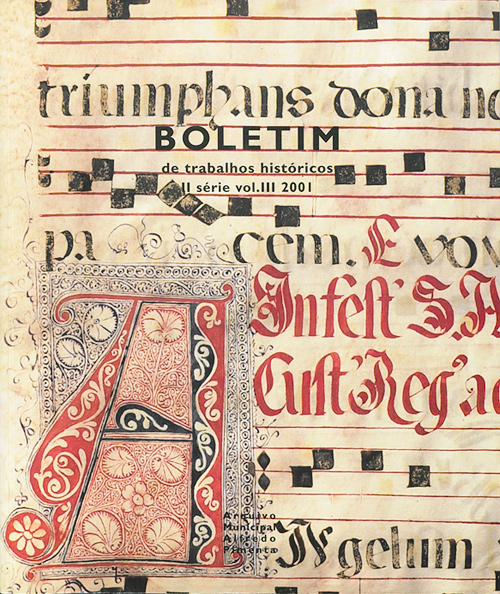 triumphans dona no
BOLETIM
de trabalhos históricos
II série vol.III 2001
pa cem. E vov
Infest' S. A
Cust' Reg' ac
A
Arquivo
Municipal
Alfredo
Pimenta
IN gelum